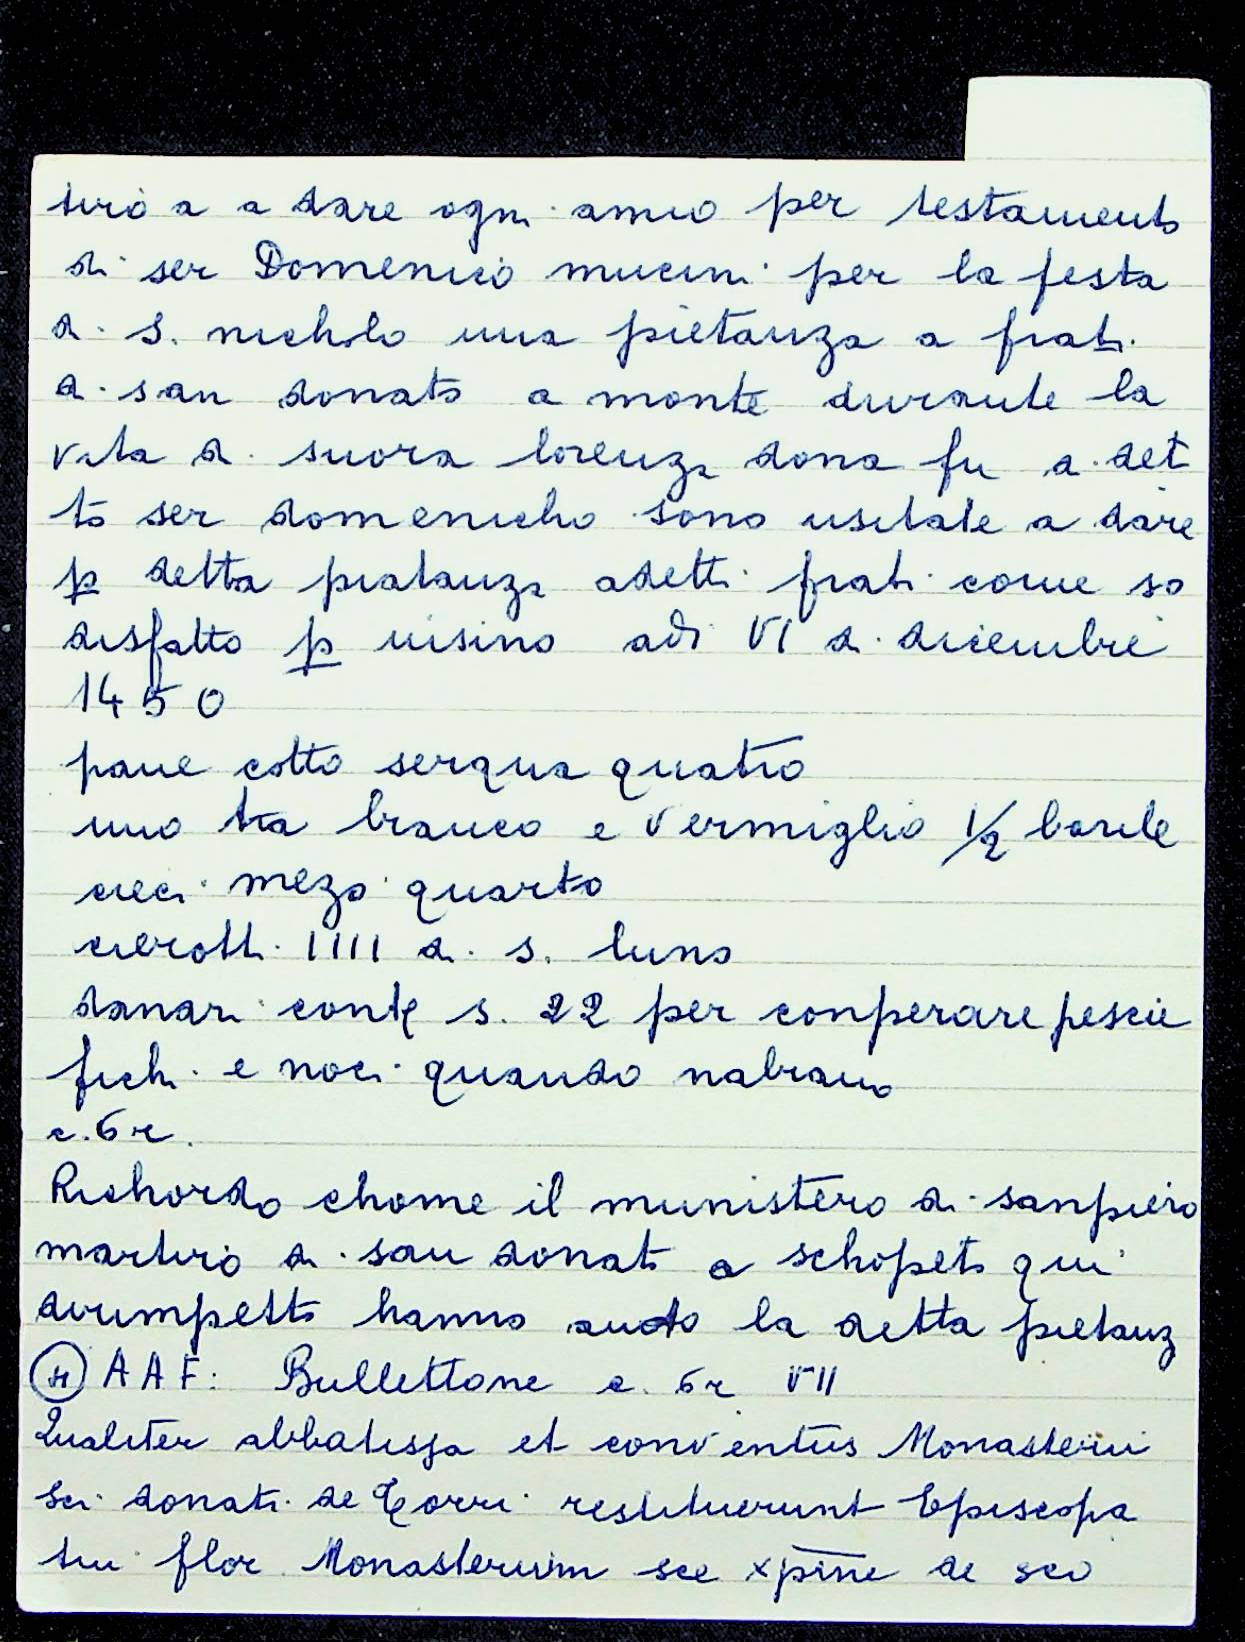 tirio a a dare ogni anno per testamento
di ser Domenico mucini per la festa
di S. nicholo una pietanza a frati
di san donato a monte durante la
vita di suora lorenza dona fu di det
to ser domenicho sono usitate a dare
p detta piatanza a detti frati come so
disfatto p uisino adi VI di dicienbre
1450
pane cotto serqua quatro
uino tra bianco e vermiglio 1/2 barile
cieci mezo quarto
cierotti IIII di s. luno
danari cont s. 22 per conperare pescie
fichi e noci quando nabiano
c. 6 r.
Richordo chome il munistero di sanpiero
martirio di san donato a schopeto qui
dirimpetto hanno auto la detta pietanz
AAF: Bullettone c. 6r VII
Qualiter abbatissa et conventus Monasterii
sci donati de Torri restituerunt Episcopa
tui flor Monasterium sce xpine de sco